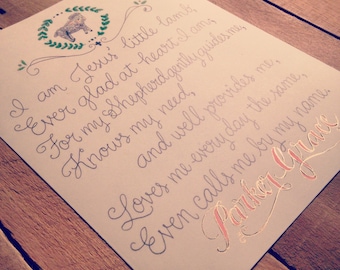 I am Jesus little lamb,
Ever glad at heart I am,
For my Shepherd gently guides me,
Knows my need,
and well provides me,
Loves me every day the same,
Even calls me by my name.
Parker Grove